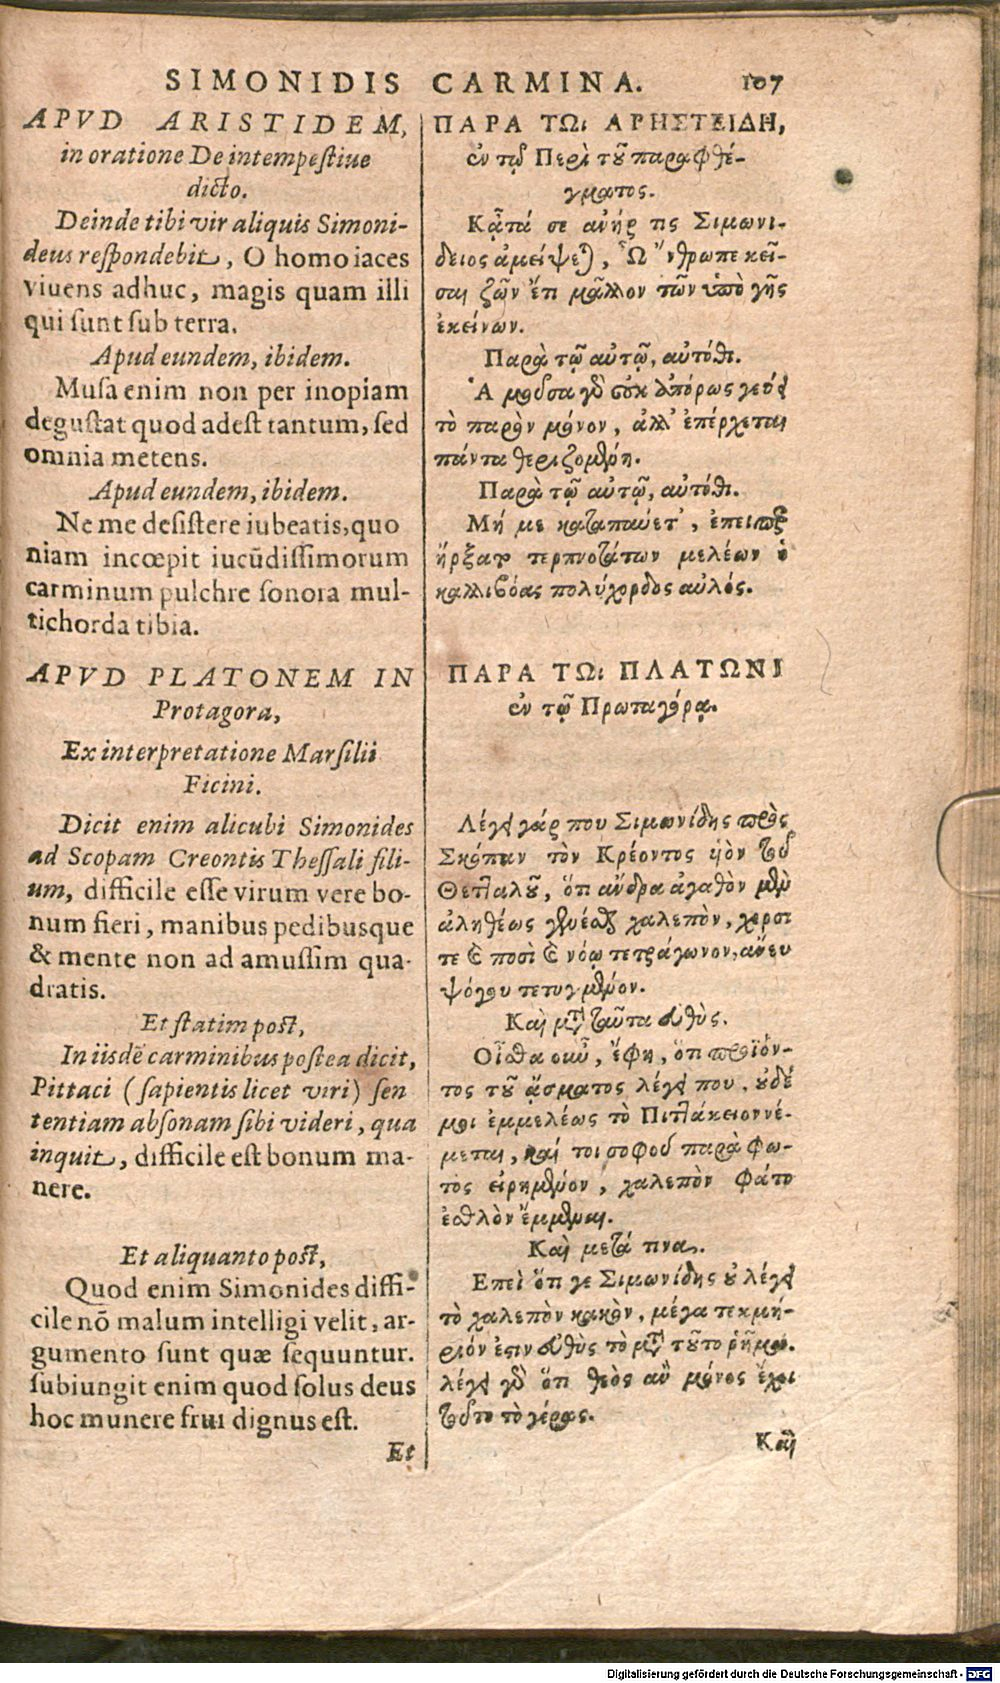 SIMONIDIS CARMINA. 107
APVD ARISTIDEM,
in oratione De intempestiue
dicto.
Deinde tibi vir aliquis Simoni-
deus respondebit, O homo iaces
viuens adhuc, magis quam illi
qui sunt sub terra.
Apud eundem, ibidem.
Musa enim non per inopiam
degustat quod adest tantum, sed
omnia metens.
Apud eundem, ibidem.
Ne me desistere iubeatis, quo
niam incœpit iucũdissimorum
carminum pulchre sonora mul-
tichorda tibia.
APVD PLATONEM IN
Protagora,
Ex interpretatione Marsilii
Ficini.
Dicit enim alicubi Simonides
ad Scopam Creontis Thessali fili-
um, difficile esse virum vere bo-
num fieri, manibus pedibusque
& mente non ad amussim qua-
dratis.
Et statim post,
In iisdẽ carminibus postea dicit,
Pittaci (sapientis licet viri) sen
tentiam absonam sibi videri, qua
inquit, difficile est bonum ma-
nere.
Et aliquanto post,
Quod enim Simonides diffi-
cile nõ malum intelligi velit, ar-
gumento sunt quæ sequuntur.
subiungit enim quod solus deus
hoc munere frui dignus est.
Et
ΠΑΡΑ ΤΩι ΑΡΗΣΤΕΙΔΗ,
ἐν τῷ Περὶ τοῦ παραφθέ-
γματος.
Κᾆτά σε ἀνήρ τις Σιμωνί-
δειος ἀμείψεται, Ὦ ἄνθρωπε κεῖ-
σαι ζῶν ἔτι μᾶλλον τῶν ὑπὸ γῆς
ἐκείνων.
Παρὰ τῷ αὐτῷ, αὐτόθι.
Ἁ μοῦσα γὰρ οὐκ ἀπόρως γεύει
τὸ παρὸν μόνον, ἀλλ' ἐπέρχεται
πάντα θεριζομένη.
Παρὰ τῷ αὐτῷ, αὐτόθι.
Μή με καταπαύετ', ἐπείπερ
ἤρξατο τερπνοτάτων μελέων ὁ
καλλιβόας πολύχορδος αὐλός.
ΠΑΡΑ ΤΩι ΠΛΑΤΩΝΙ
ἐν τῷ Πρωταγόρᾳ.
Λέγει γάρ που Σιμωνίδης πρὸς
Σκόπαν τὸν Κρέοντος υἱὸν τοῦ
Θετταλοῦ, ὅτι ἄνδρα ἀγαθὸν μὲν
ἀληθέως γενέσθαι χαλεπὸν, χερσί
τε καὶ ποσὶ καὶ νόῳ τετράγωνον, ἄνευ
ψόγου τετυγμένον.
Καὶ μετὰ ταῦτα εὐθὺς.
Οἶσθα οὖν, ἔφη, ὅτι προϊόν-
τος τοῦ ᾄσματος λέγει που, οὐδέ
μοι ἐμμελέως τὸ Πιττάκειον νέ-
μεται, καί τοι σοφοῦ παρὰ φω-
τὸς εἰρημένον, χαλεπὸν φάτο
ἐσθλὸν ἔμμεναι.
Καὶ μετά τινα.
Επεὶ ὅτι γε Σιμωνίδης οὐ λέγει
τὸ χαλεπὸν κακὸν, μέγα τεκμή-
ριόν ἐστιν εὐθὺς τὸ μετὰ τοῦτο ῥῆμα.
λέγει γὰρ ὅτι θεὸς ἂν μόνος ἔχοι
τοῦτο τὸ γέρας.
Καὶ
Digitalisierung gefördert durch die Deutsche Forschungsgemeinschaft - DFG